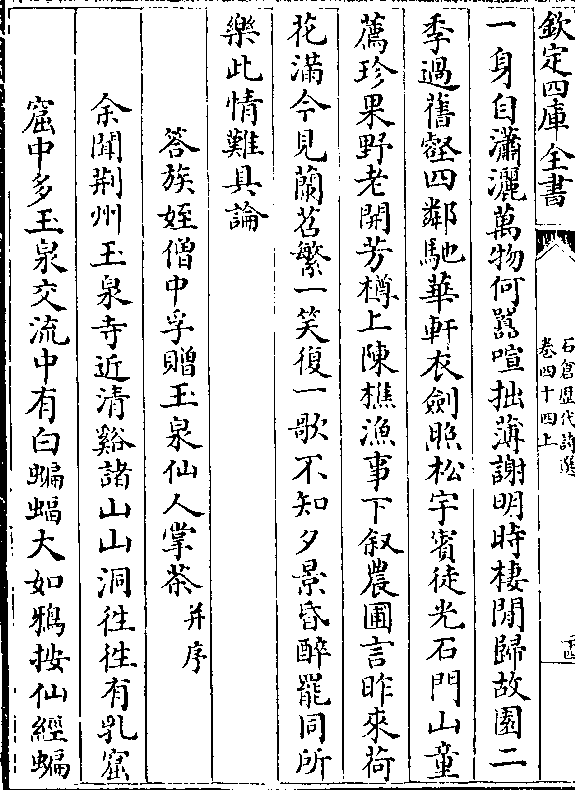 欽定四庫全書
石倉歷代詩選
卷四十四上
一身自瀟灑萬物何囂喧拙薄謝明時棲閒歸故園二
季過舊壑四鄰馳華軒衣劍照松宇賓徒光石門山童
薦珍果野老開芳樽上陳樵漁事下叙農圃言昨來荷
花滿今見蘭苕繁一笑復一歌不知夕景昏醉罷同所
樂此情難具論
答族姪僧中孚贈玉泉仙人掌茶并序
余聞荆州玉泉寺近清谿諸山山洞徃徃有乳窟
窟中多玉泉交流中有白蝙蝠大如鴉按仙經蝙